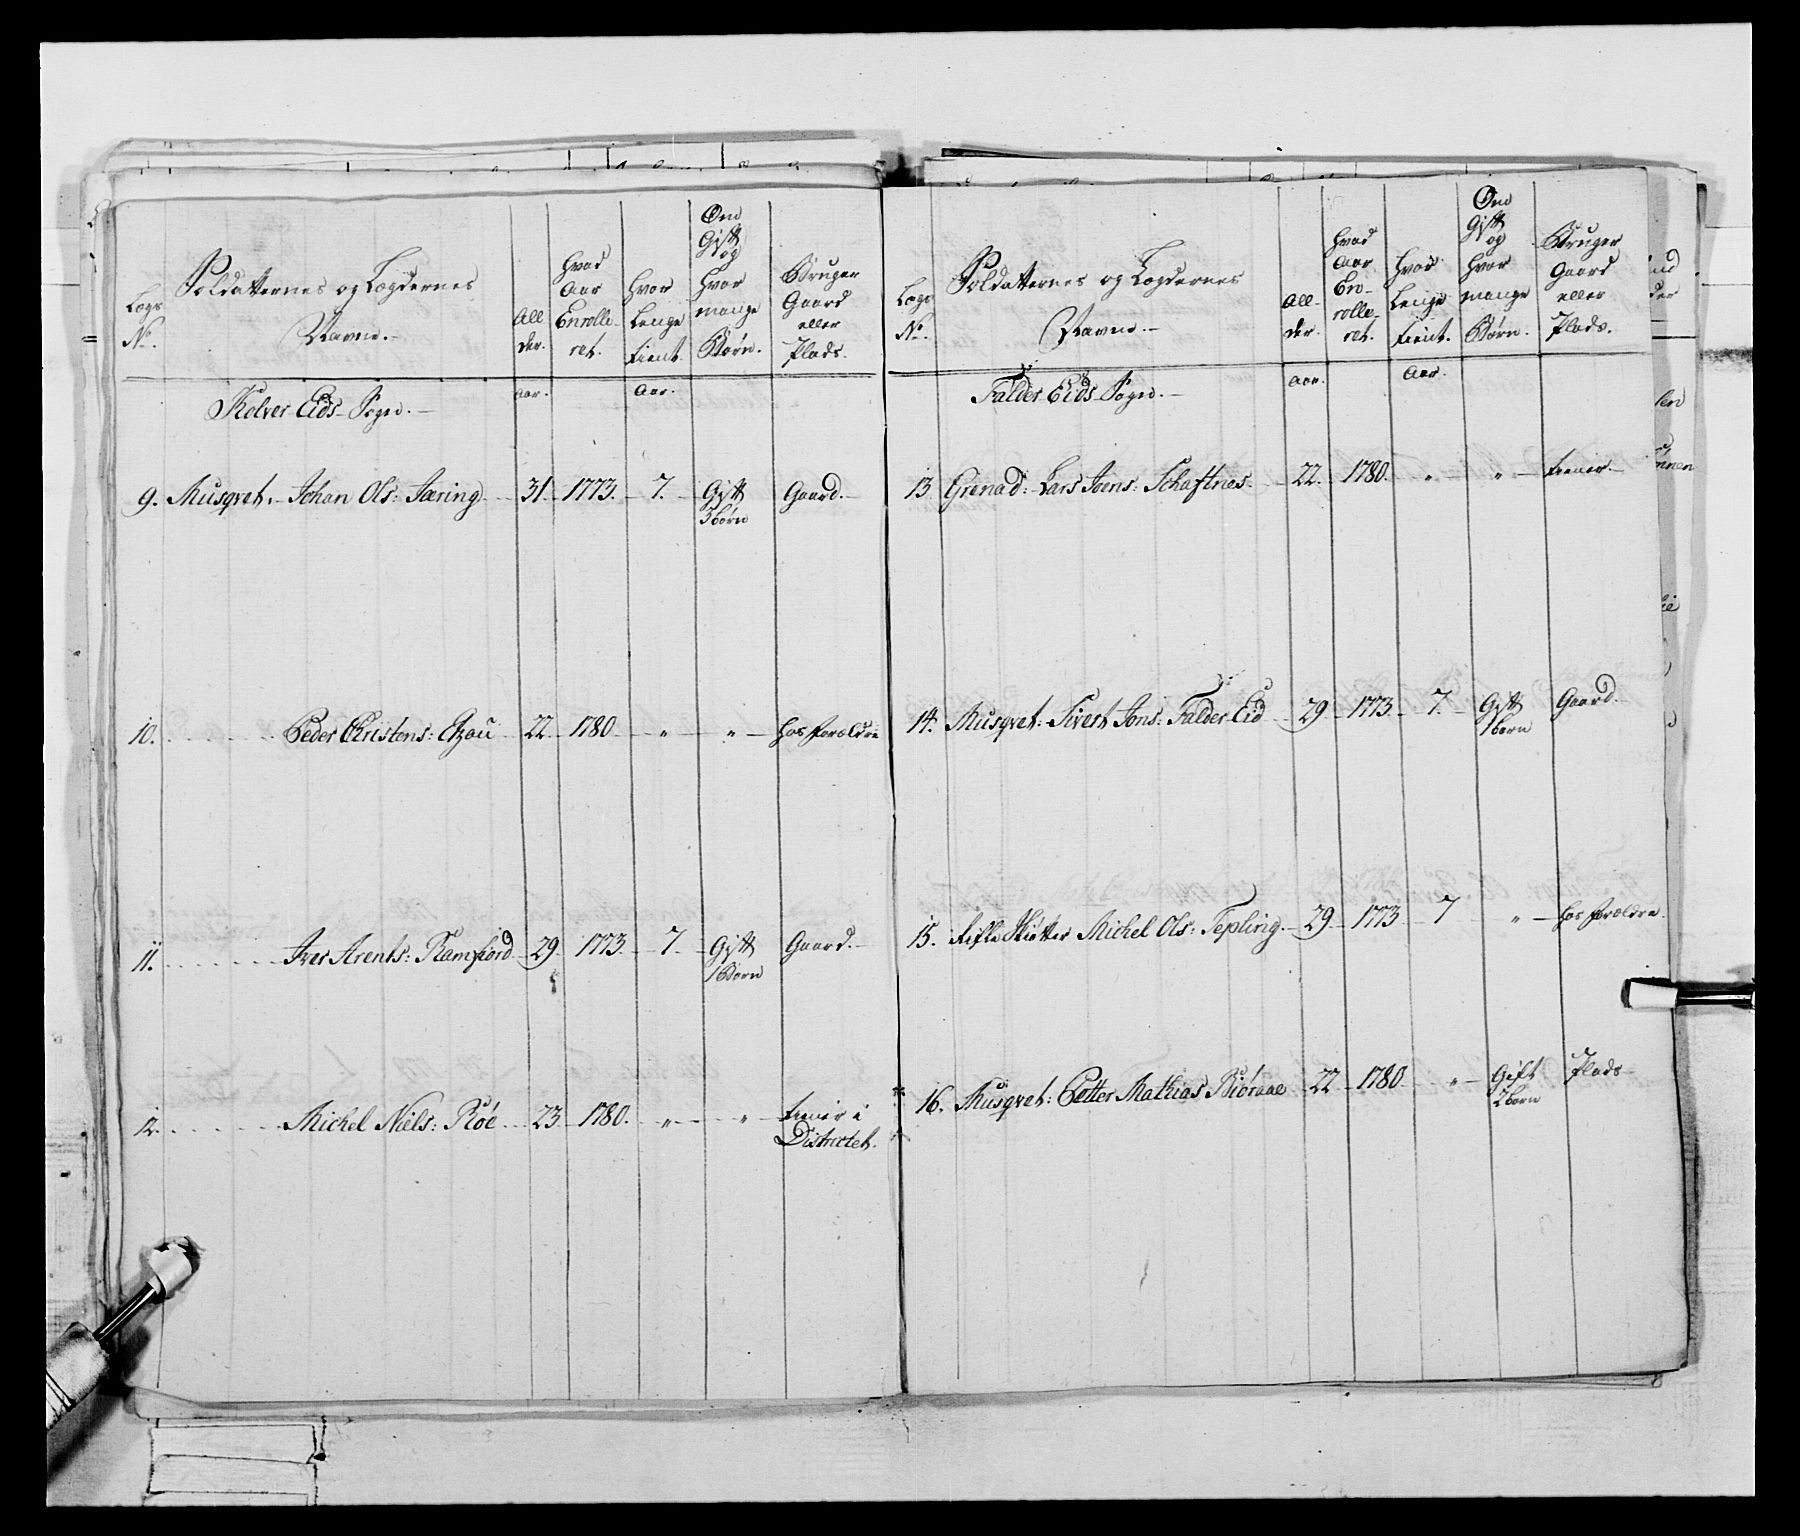 Legs
No.
Soldatternes og Legdernes
Navne.
All
der.
hvad
Aar
Enrolle-
ret.
hvor
lenge
tient.
Om
Gift
og
hvor
mange
Børn.
Bruger
Gaard
eller
Plads.
Kolver Eids Sogn.
Aar.
Aar.
9. Musqvet. Johan Ols: Særing 31. 1773. 7. Gift Gaard.
3 børn
10. Peder Christens: 22 1780 " " hos forældre
11. Iver Arents: Ramfiord 29 1773. 7. Gift Gaard.
1 Børn
12. Michel Niels: Røe 23 1780. " " tiener i
Districtet.
Legs
No.
Soldatternes og Legdernes
Navne.
All
der.
hvad
Aar
En-
rolle-
ret.
hvor
lenge
tient.
Om
Gift
og
hvor
mange
Børn.
Bruger
Gaard
eller
Plads.
Falder Eids Sogn.
Aar.
Aar.
13 Grenad: Lars Joens: Schaftnes. 22. 1780. " " tiener.
14. Musqvet: Sivert Jons: Falder Eid 29 1773 7. Gift Gaard.
1 børn
15. Rifle Skiøtter Michel Ols: Tepling. 29 1773 7 " hos forældre.
16. Musqvet: Petter Mathias Biøraae 22 1780. " Gift Plads
2 børn